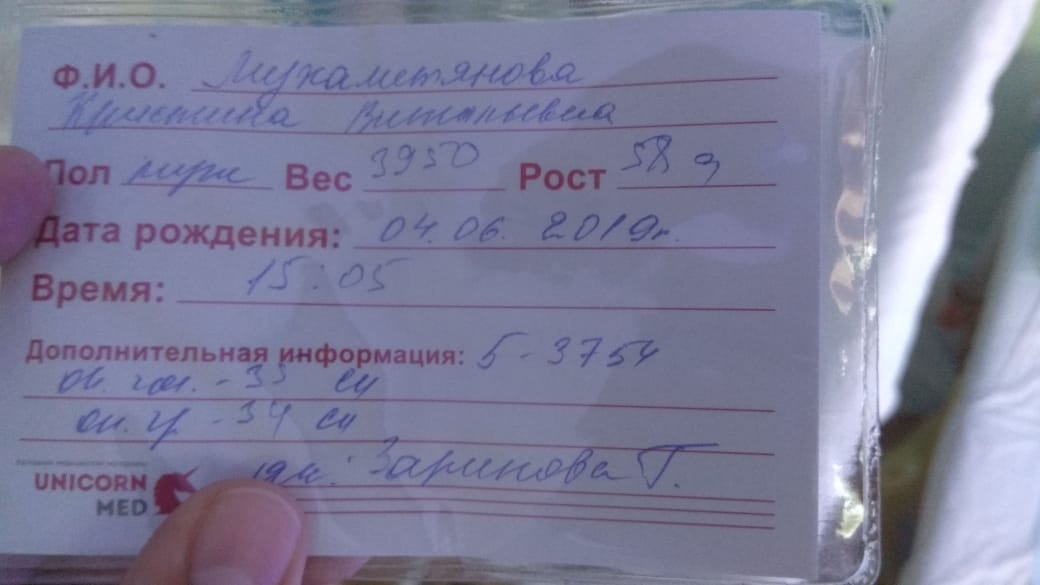 Ф.И.О. Мухаметянова
Кристина Витальевна
Пол муж Вес 3950 Рост 58
Дата рождения: 04.06.2019г.
Время: 15:05
Дополнительная информация: 5-3754
ок. гол. - 35 см
ок. гр - 34 см
Зарипова Г.
UNICORN
MED